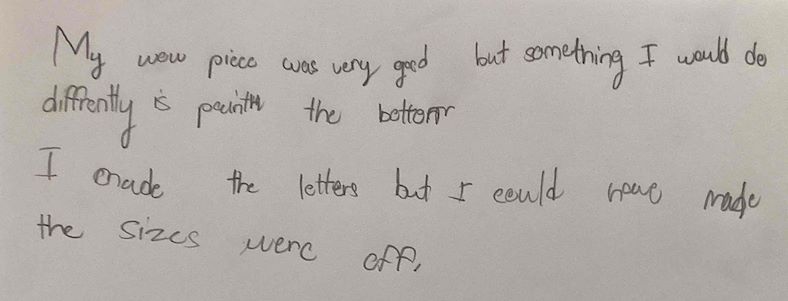 My wow piece was very good but something I would do
diffrently is the bottom
I made the letters but I could have made
the sizes were off.